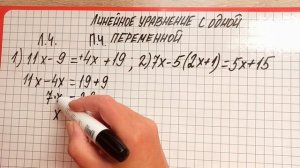 ЛИНЕЙНОЕ УРАВНЕНИЕ С ОДНОЙ
Л.Ч. П.Ч. ПЕРЕМЕННОЙ
1) 11x - 9 = +4x + 19; 2) 7x - 5(2x+1) = 5x + 15
11x - 4x = 19 + 9
7·x =
x